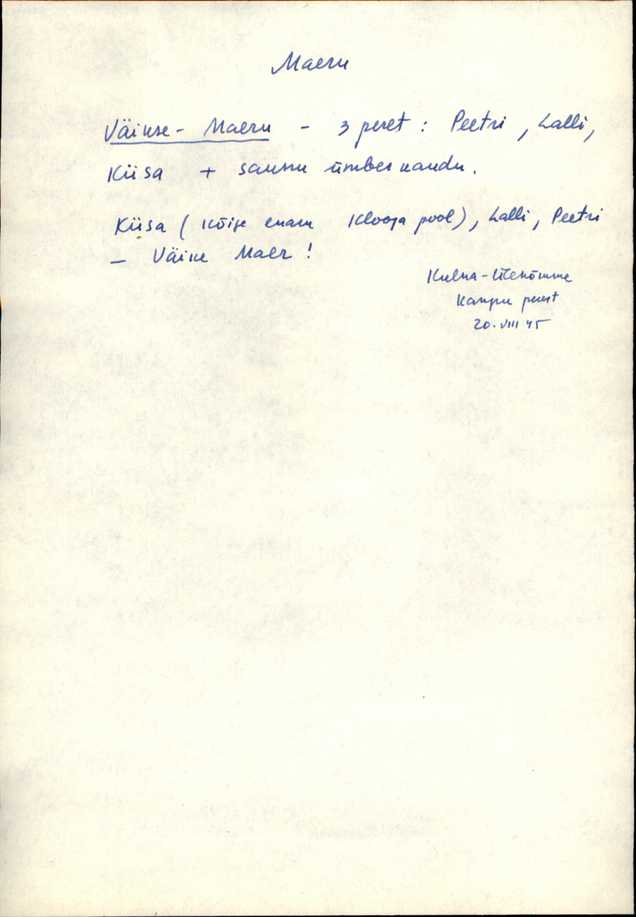 Maeru
Väikse-Maeru - 3 peret : Peetri, Lalli,
Kiisa + saunu ümberkaudu.
Kiisa (kõige enam Klooga pool), Lalli, Peetri
– Väike Maer!
Kulna-
Kangru perest
20. VIII 45